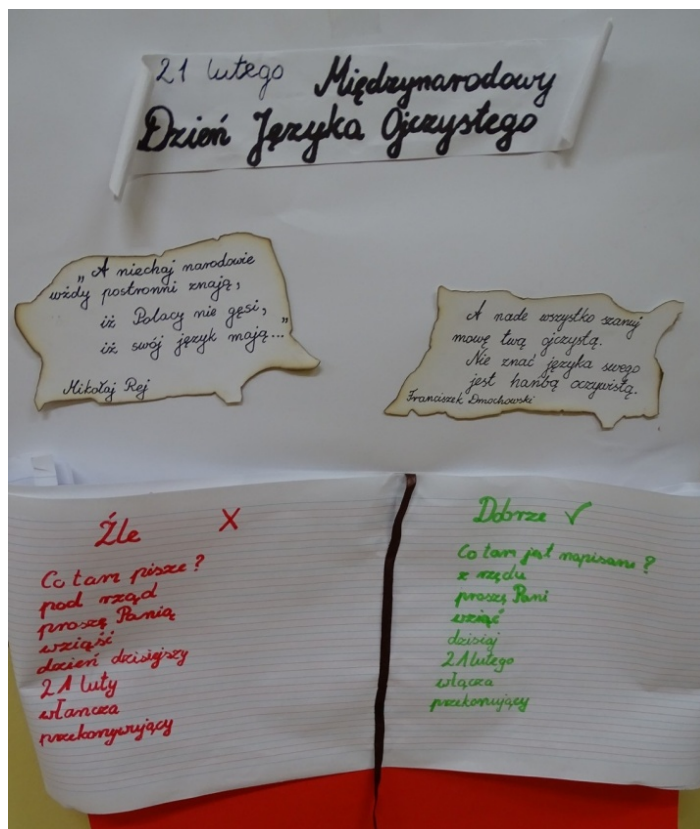 21 lutego Międzynarodowy
Dzień Języka Ojczystego
„A niechaj narodowie
wżdy postronni znają,
iż Polacy nie gęsi,
iż swój język mają..."
Mikołaj Rej
A nade wszystko szanuj
mowę twą ojczystą.
Nie znać języka swego
jest hańbą oczywistą.
Franciszek Dmochowski
Źle X
Co tam pisze?
pod rząd
proszę Panią
wziąść
dzień dzisiejszy
21 luty
włancza
przekonywujący
Dobrze ✓
Co tam jest napisane?
z rzędu
proszę Pani
wziąć
dzisiaj
21 lutego
włącza
przekonujący